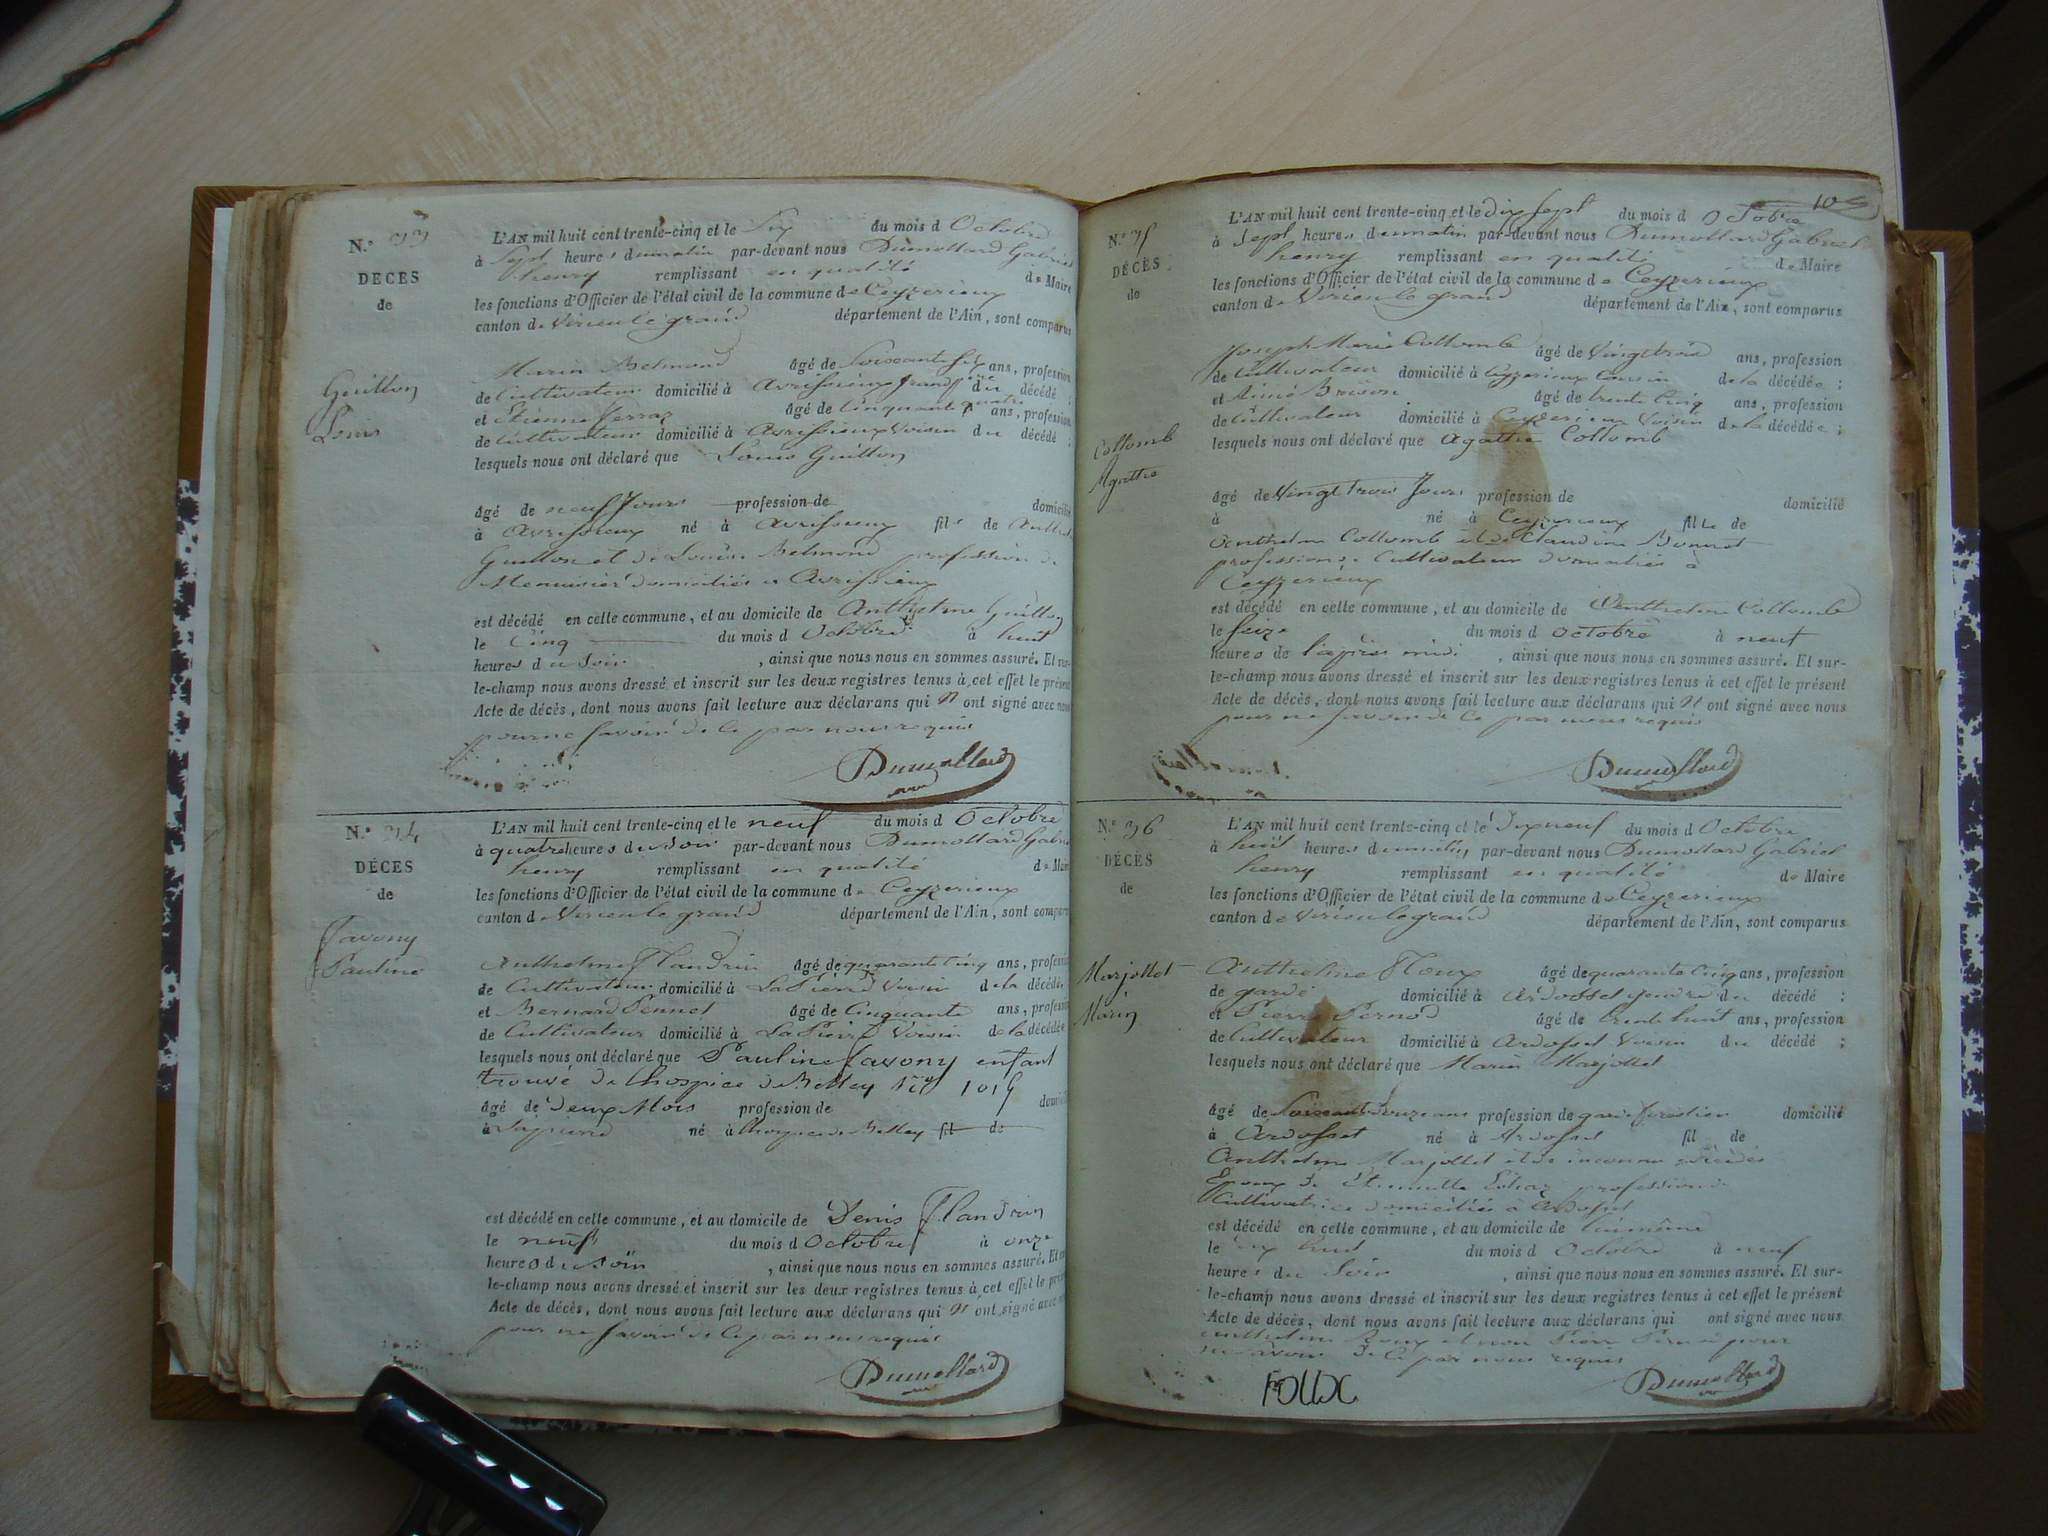 N.° 33
DÉCÈS
de
Guillon
Louis
L'AN mil huit cent trente-cinq et le Six du mois d Octobre
à Sept heures du matin par-devant nous Dumollard Gabriel
henry remplissant en qualité de Maire
les fonctions d'Officier de l'état civil de la commune de Ceyzerieux
canton de Virieu le grand département de l'Ain, sont comparus
Marin Belmond âgé de Soixante Six ans, profession
de Cultivateur domicilié à Avrissieux grand père du décédé ;
et Etienne Ferraz âgé de Cinquante quatre ans, profession
de Cultivateur domicilié à Avrissieux Voisin du décédé ;
lesquels nous ont déclaré que Louis Guillon
âgé de neuf Jours profession de domicilié
à Avrissieux né à Avrissieux fils de Anthelme
Guillon et de Louise Belmond profession de
Menuisier domiciliés à Avrissieux
est décédé en cette commune, et au domicile de Anthelme Guillon
le Cinq du mois d Octobre à huit
heures du Soir , ainsi que nous nous en sommes assuré. Et sur-
le-champ nous avons dressé et inscrit sur les deux registres tenus à cet effet le présent
Acte de décès, dont nous avons fait lecture aux déclarans qui N' ont signé avec nous
pour ne savoir de ce par nous requis
Dumollard
N.° 34
DÉCÈS
de
Savony
Pauline
L'AN mil huit cent trente-cinq et le neuf du mois d Octobre
à quatre heures du soir par-devant nous Dumollard Gabriel
henry remplissant en qualité de Maire
les fonctions d'Officier de l'état civil de la commune de Ceyzerieux
canton de Virieu le grand département de l'Ain, sont comparus
Anthelme Flandrin âgé de quarante Cinq ans, profession
de Cultivateur domicilié à La Pierre Voisin de la décédée
et Bernard Pennet âgé de Cinquante ans, profession
de Cultivateur domicilié à La Pierre Voisin de la décédée
lesquels nous ont déclaré que Pauline Savony enfant
trouvé de l'hospice de Belley N° 1019
âgé de Deux Mois profession de domicilié
à Lapierre né à l'hospice de Belley fil de
est décédé en cette commune, et au domicile de Denis Flandrin
le neuf du mois d Octobre à onze
heures du soir , ainsi que nous nous en sommes assuré. Et sur-
le-champ nous avons dressé et inscrit sur les deux registres tenus à cet effet le présent
Acte de décès, dont nous avons fait lecture aux déclarans qui N' ont signé avec nous
pour ne savoir de ce par nous requis
Dumollard
N.° 35
DÉCÈS
de
Collomb
Agathe
L'AN mil huit cent trente-cinq et le Dix Sept du mois d Octobre
à Sept heures du matin par-devant nous Dumollard Gabriel
henry remplissant en qualité de Maire
les fonctions d'Officier de l'état civil de la commune de Ceyzerieux
canton de Virieu le grand département de l'Ain, sont comparus
Joseph Marie Collomb âgé de Vingt trois ans, profession
de Cultivateur domicilié à Ceyzerieux Cousin de la décédée ;
et Aimé Brison âgé de trente Cinq ans, profession
de Cultivateur domicilié à Ceyzerieux Voisin de la décédée ;
lesquels nous ont déclaré que Agathe Collomb
âgé de Vingt trois Jours profession de domicilié
à né à Ceyzerieux fille de
Anthelme Collomb et de Claudine Bonnet
professions Cultivateur domiciliés à
Ceyzerieux
est décédé en cette commune, et au domicile de Anthelme Collomb
le Seize du mois d Octobre à neuf
heures de l'après midi , ainsi que nous nous en sommes assuré. Et sur-
le-champ nous avons dressé et inscrit sur les deux registres tenus à cet effet le présent
Acte de décès, dont nous avons fait lecture aux déclarans qui N' ont signé avec nous
pour ne savoir de ce par nous requis
Dumollard
N.° 36
DÉCÈS
de
Marjollet
Marin
L'AN mil huit cent trente-cinq et le Dix neuf du mois d Octobre
à huit heures du matin par-devant nous Dumollard Gabriel
henry remplissant en qualité de Maire
les fonctions d'Officier de l'état civil de la commune de Ceyzerieux
canton de Virieu le grand département de l'Ain, sont comparus
Anthelme Roux âgé de quarante Cinq ans, profession
de garde domicilié à Ardosset gendre du décédé ;
et Pierre Pernod âgé de trente huit ans, profession
de Cultivateur domicilié à Ardosset Voisin du décédé ;
lesquels nous ont déclaré que Marin Marjollet
âgé de Soixante Douze ans profession de garde forestier domicilié
à Ardosset né à Ardosset fil de
Anthelme Marjollet et de inconnu décédés
Epoux de Etiennette profession de
Cultivatrice domiciliés à Ardosset
est décédé en cette commune, et au domicile de lui même
le Dix huit du mois d Octobre à neuf
heures du Soir , ainsi que nous nous en sommes assuré. Et sur-
le-champ nous avons dressé et inscrit sur les deux registres tenus à cet effet le présent
Acte de décès, dont nous avons fait lecture aux déclarans qui ont signé avec nous
anthelme Roux et non Pierre Pernod pour
ne savoir de ce par nous requis
roux Dumollard